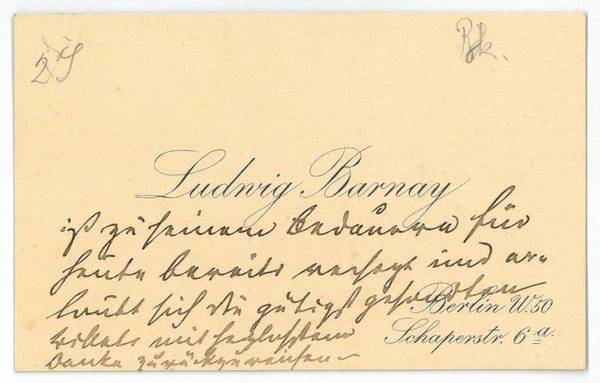 Bk.
Ludwig Barnay
ist zu seinem Bedauern für
heute bereits versagt und er-
laubt sich die gütigst gesandten
Billets mit herzlichstem
Danke zurückzureichen
Berlin W.50
Schaperstr. 6a.